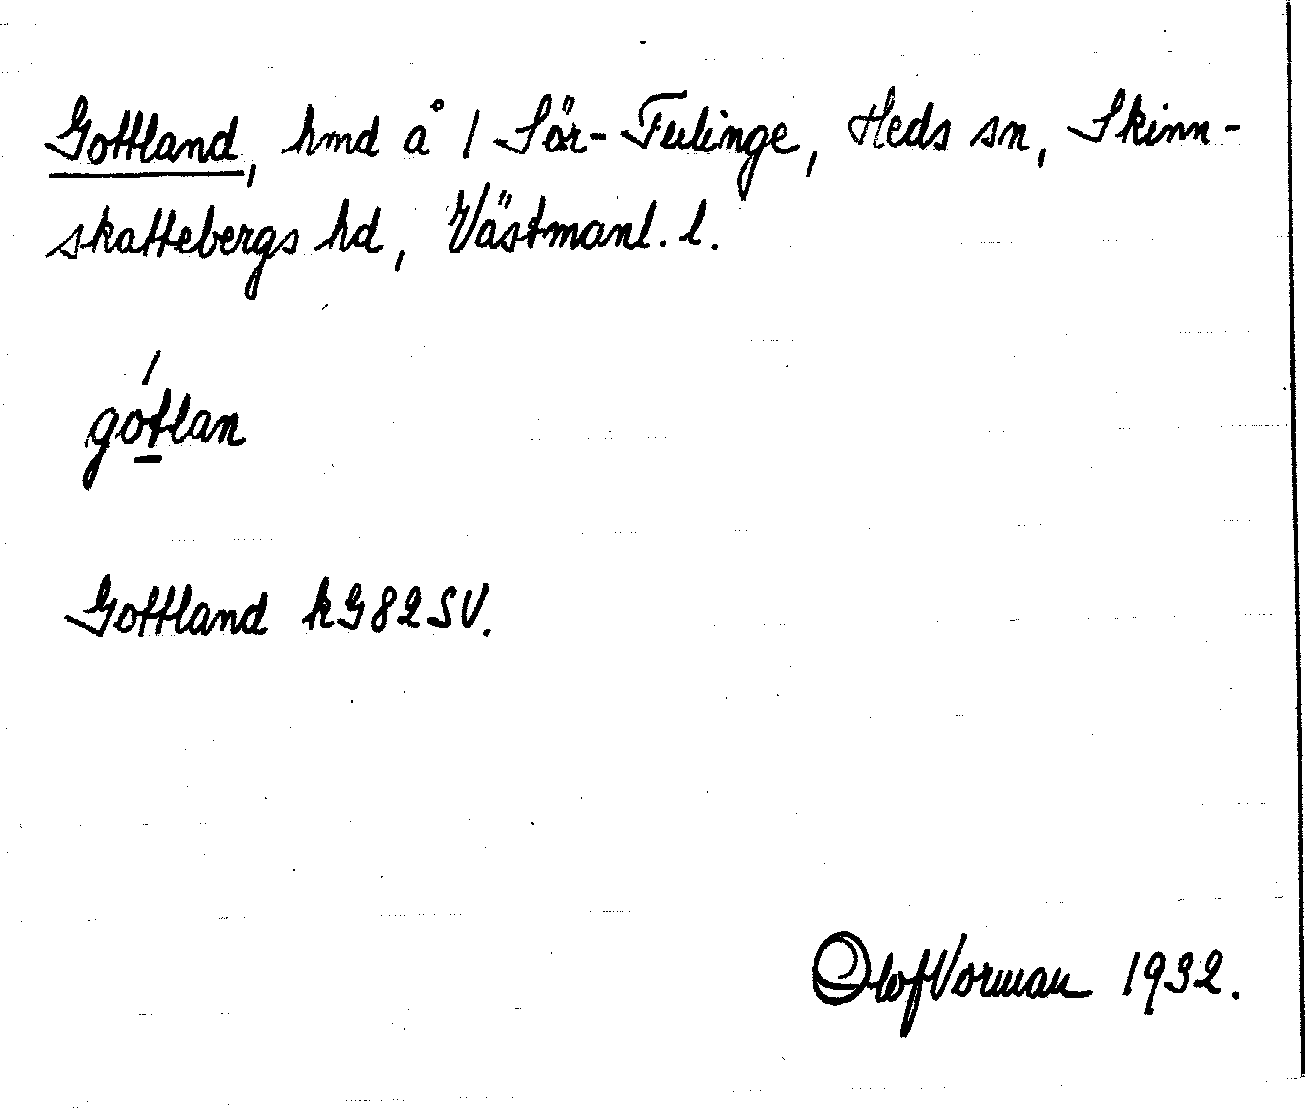 Gottland, hmd å 1 Sör-Feelinge, Heds sn, Skinn-
skattebergs hd, Västmanl. l.
gótlan
Gottland kG82SV.
Olof Vorman 1932.